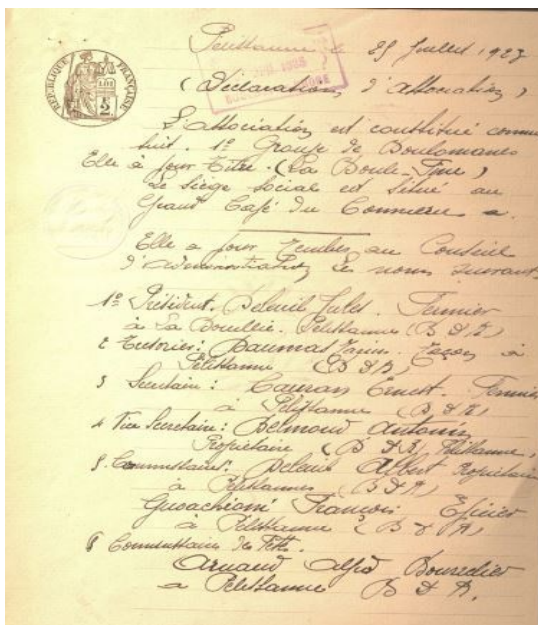 Pelissanne le 25 Juillet 1923
RÉPUBLIQUE FRANÇAISE
(Déclaration d'Association)
L'association est constitué comme
suit. 1º Groupe de Boulomanes
Elle a pour Titre. (La Boule-Fine)
Le Siège social est situé au
Grand Café du Commerce
Elle a pour membres au Conseil
d'administration les noms suivants
1º Président. Deleuil Jules. Fermier
à La Pelissanne (B d R)
2 Trésorier: Daumas à
Pelissanne (B d R)
3 Secretaire: Cauran Ernest. Fermier
à Pelissanne (B d R)
4 Vice Secretaire: Belmond Antonin
Propriétaire (B d R) Pelissanne,
5. Commissaires: Deleuil Albert Propriétaire
à Pelissanne (B d R)
François Epicier
à Pelissanne (B d R)
6 Commissaire des Fêtes.
Arnaud Alfred
a Pelissanne B d R.